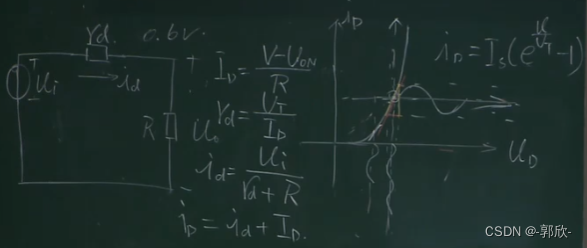 rd. 0.6V.
+
Ui
-
id
R
Uo
-
I_D = (V - U_ON) / R
rd = U_T / I_D
id = Ui / (rd + R)
i_D = id + I_D.
i_D
i_D = I_S(e^(u/U_T) - 1)
U_D
CSDN @-郭欣-